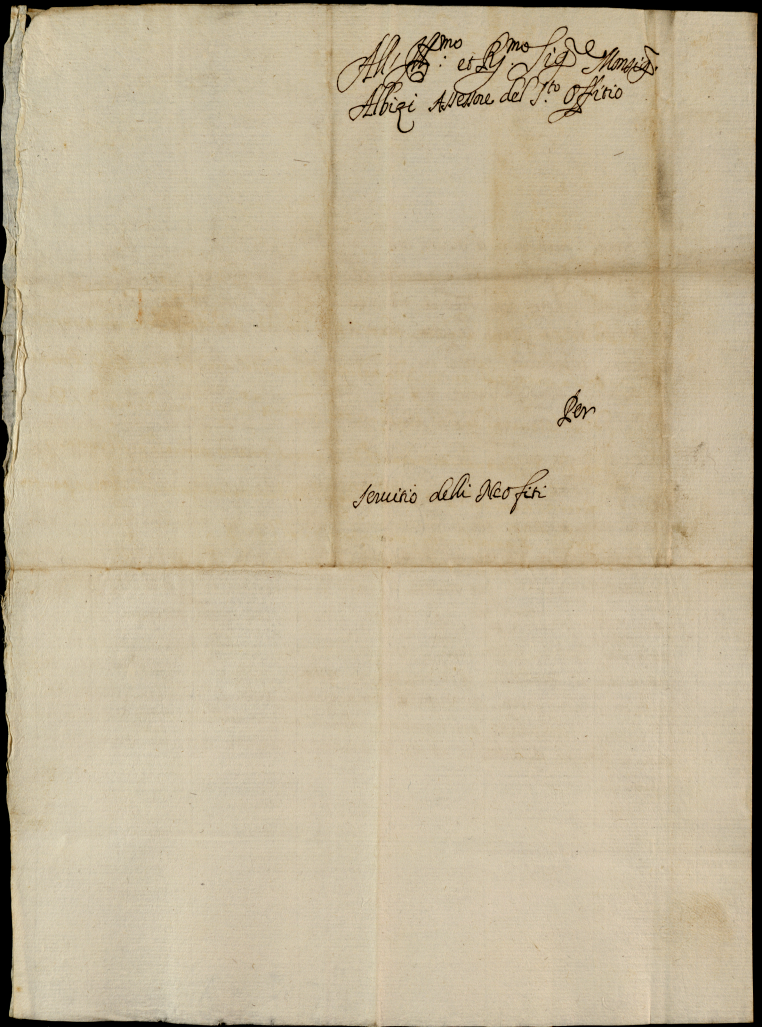 All Ill.mo et R.mo Sig.e Monsig.
Albizi Assessore del S.to Offitio
Per
seruitio delli Neofiti